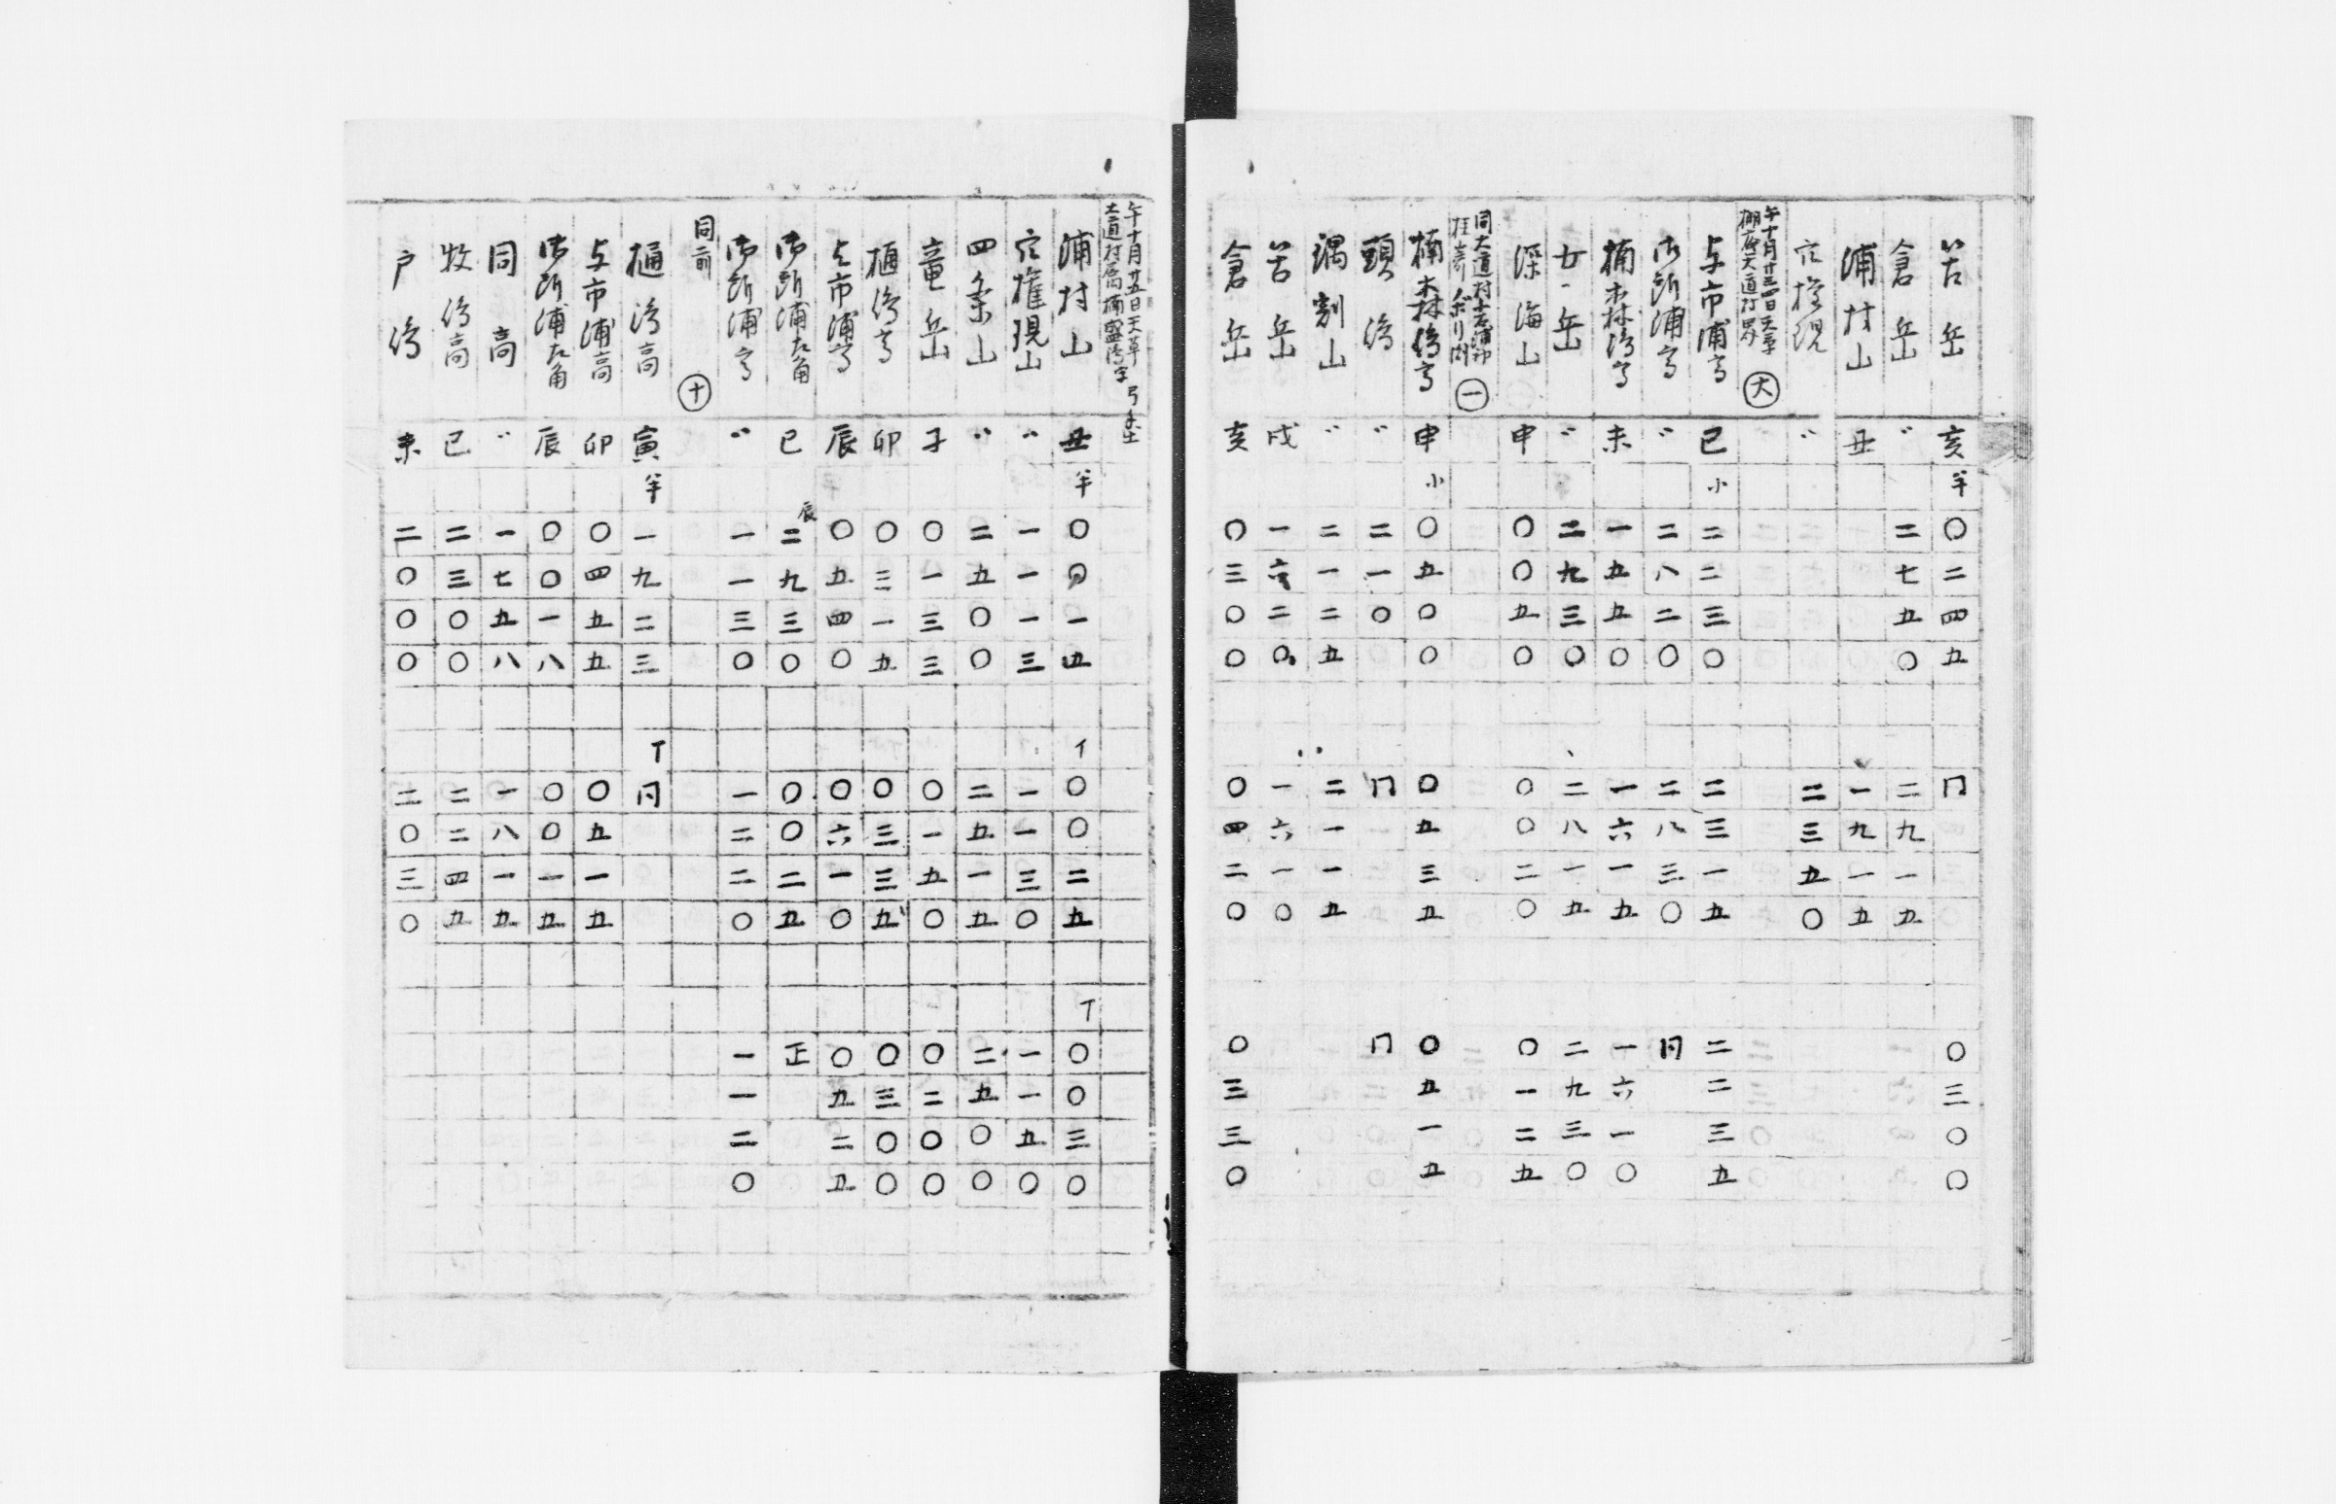 苫岳 亥半 〇二四五 冂 〇三〇〇
倉岳 〃 二七五〇 二九一五
浦村山 丑 一九一五
穴権現 〃 二三五〇
午十月廿四日天草
棚底大道村界 大
与市浦高 巳小 二二三〇 二三一五 二二三五
御所浦高 〃 二八二〇 二八三〇 同
楠木森崎高 未 一五五〇 一六一五 一六一〇
女岳 〃 二九三〇 二八一五 二九三〇
深海山 申 〇〇五〇 〇〇二〇 〇一二五
同大道村
一
楠木森崎高 申小 〇五〇〇 〇五三五 〇五一五
頭崎 〃 二一〇 冂 冂
鍋割山 〃 二一二五 二一一五
苫岳 戌 一六二〇 一六一〇
倉岳 亥 〇三〇〇 〇四二〇 〇三三〇
午十月廿五日天草
大道村属楠盛島字
浦村山 丑半 〇〇一五 イ 〇〇二五 丁 〇〇三〇
穴権現山 〃 一一一三 一一三〇 一一五〇
四条山 〃 二五〇〇 二五一五 二五〇〇
竜岳 子 〇一三三 〇一五〇 〇二〇〇
樋崎高 卯 〇三一五 〇三三五 〇三〇〇
与市浦高 辰 〇五四〇 〇六一〇 〇九二五
御所浦左角 巳 辰 二九三〇 〇〇二五 正
御所浦高 〃 一一三〇 一二二〇 一一二〇
同所 十
樋崎高 寅半 一九二三 丁 同
与市浦高 卯 〇四五五 〇五一五
御所浦左角 辰 〇〇一八 〇〇一五
同高 〃 一七五八 一八一五
牧崎高 巳 二三〇〇 二二四五
戸崎 未 二〇〇〇 二〇三〇